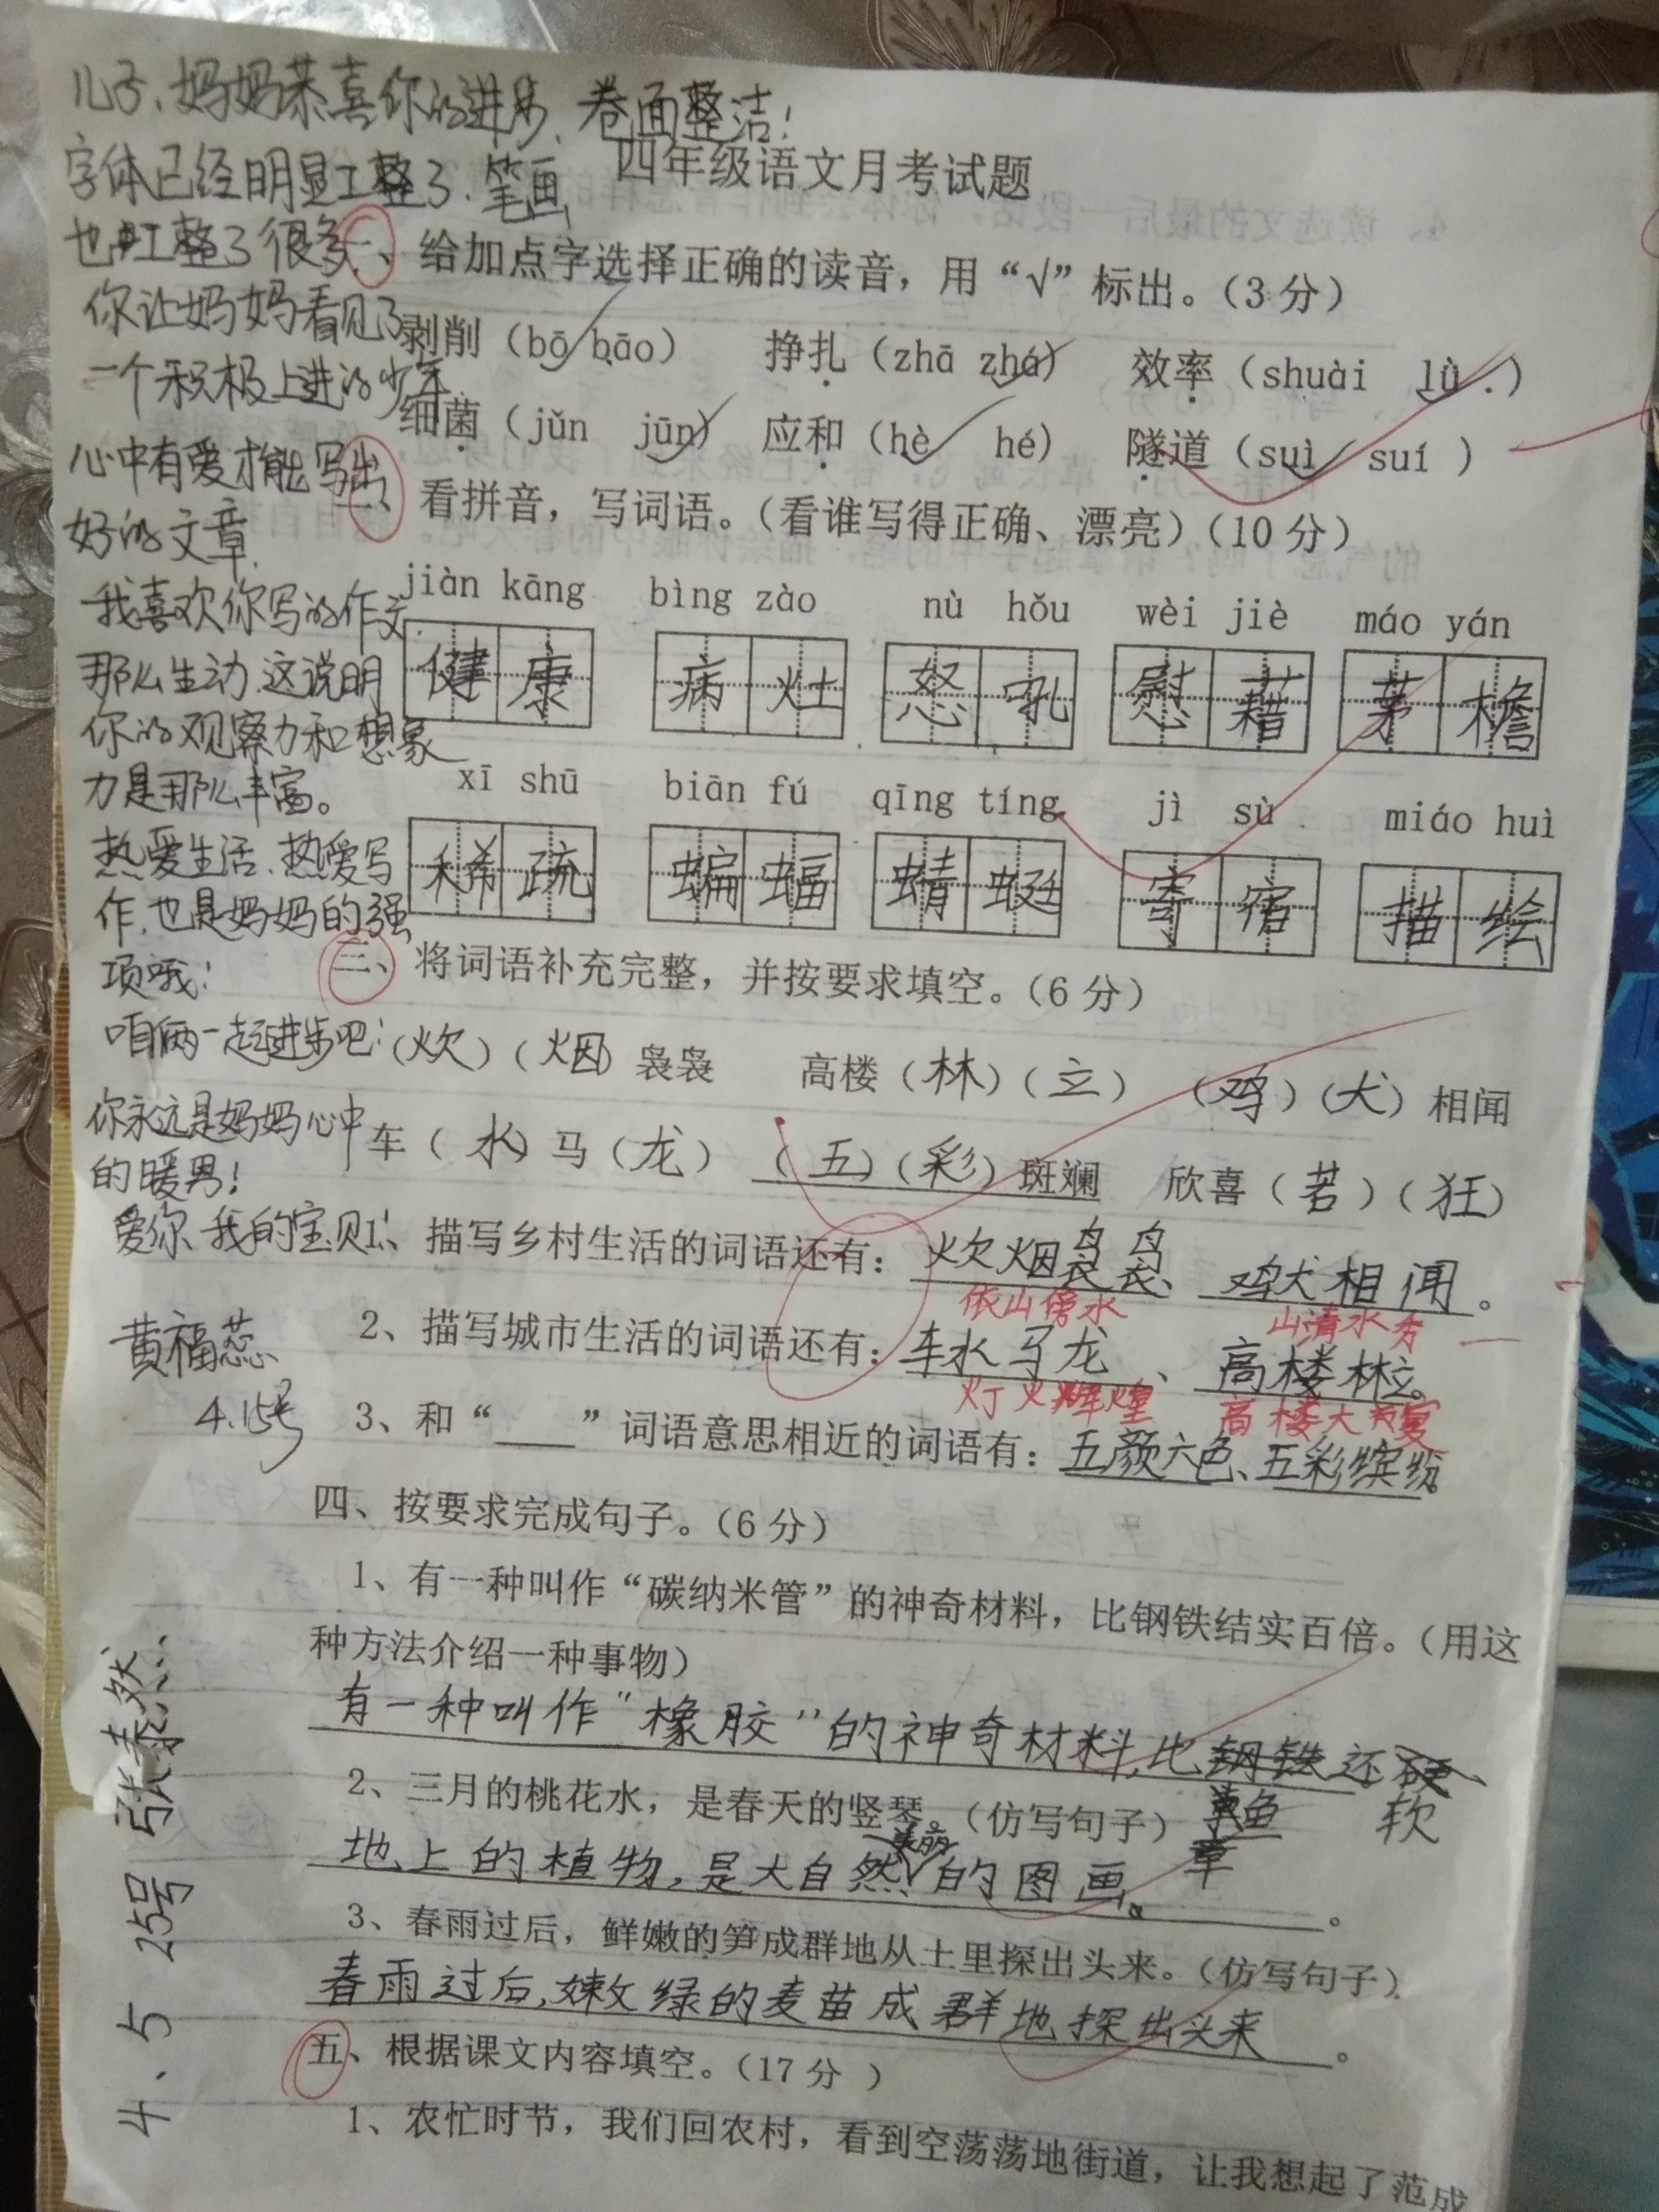 儿子、妈妈恭喜你的进步,卷面整洁!
字体已经明显工整了.笔画
也工整了很多
你让妈妈看见了
一个积极上进的少年.
心中有爱才能写出
好的文章.
我喜欢你写的作文
那么生动.这说明
你的观察力和想象
力是那么丰富。
热爱生活、热爱写
作,也是妈妈的强
项哦!
咱俩一起进步吧!
你永远是妈妈心中
的暖男!
爱你 我的宝贝!
黄福蕊
4.15号
4.5 25号 张
四年级语文月考试题
一、给加点字选择正确的读音，用“√”标出。（3分）
剥削（bō bāo） 挣扎（zhā zhá） 效率（shuài lǜ）
细菌（jǔn jūn） 应和（hè hé） 隧道（suì suí）
二、看拼音，写词语。（看谁写得正确、漂亮）（10分）
jiàn kāng bìng zào nù hǒu wèi jiè máo yán
健康 病灶 怒吼 慰藉 茅檐
xī shū biān fú qīng tíng jì sù miáo huì
稀疏 蝙蝠 蜻蜓 寄宿 描绘
三、将词语补充完整，并按要求填空。（6分）
（炊）（烟）袅袅 高楼（林）（立） （鸡）（犬）相闻
车（水）马（龙） （五）（彩）斑斓 欣喜（若）（狂）
1、描写乡村生活的词语还有：炊烟袅袅、鸡犬相闻。
依山傍水 山清水秀
2、描写城市生活的词语还有：车水马龙、高楼林立。
灯火辉煌 高楼大厦
3、和“____”词语意思相近的词语有：五颜六色、五彩缤纷。
四、按要求完成句子。（6分）
1、有一种叫作“碳纳米管”的神奇材料，比钢铁结实百倍。（用这
种方法介绍一种事物）
有一种叫作“橡胶”的神奇材料,比钢铁还硬
章鱼 软
2、三月的桃花水，是春天的竖琴。（仿写句子）
章
美丽
地上的植物,是大自然的图画。
3、春雨过后，鲜嫩的笋成群地从土里探出头来。（仿写句子）
春雨过后,嫩绿的麦苗成群地探出头来。
五、根据课文内容填空。（17分）
1、农忙时节，我们回农村，看到空荡荡地街道，让我想起了范成